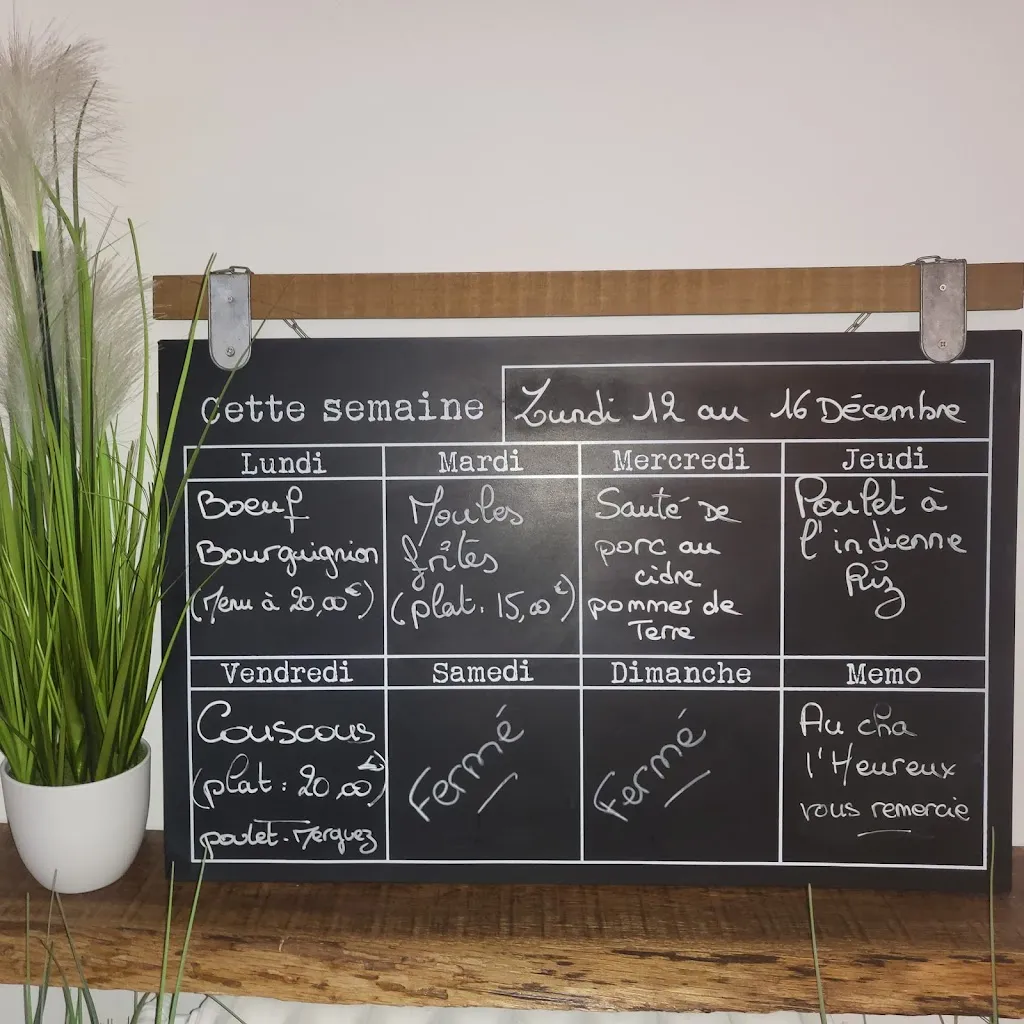 Cette semaine
Lundi 12 au 16 Décembre
Lundi
Boeuf
Bourguignon
(Menu à 20,00€)
Mardi
Moules
frîtes
(plat. 15,00€)
Mercredi
Sauté de
porc au
cidre
pommes de
Terre
Jeudi
Poulet à
l'indienne
Riz
Vendredi
Couscous
(plat : 20,00€)
poulet-Merguez
Samedi
Fermé
Dimanche
Fermé
Memo
Au cha
l'Heureux
vous remercie